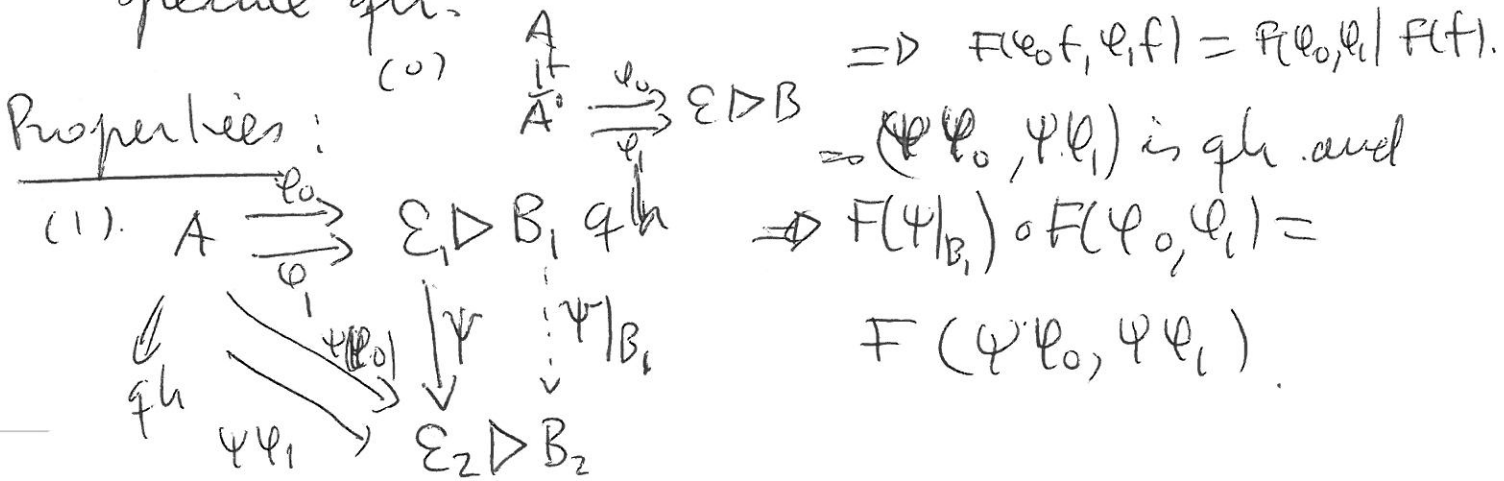 qh.
(0) A
f
A' φ₀ φ₁ ℰ ▷ B ⇒ F(φ₀f, φ₁f) = F(φ₀,φ₁) F(f).
Properties:
(1). A φ₀ φ₁ ℰ₁ ▷ B₁ qh ⇒ (ψφ₀, ψφ₁) is qh and
⇒ F(ψ|B₁) ∘ F(φ₀, φ₁) =
qh ψφ₀ ψ ψ|B₁ F(ψφ₀, ψφ₁).
ψφ₁ ℰ₂ ▷ B₂